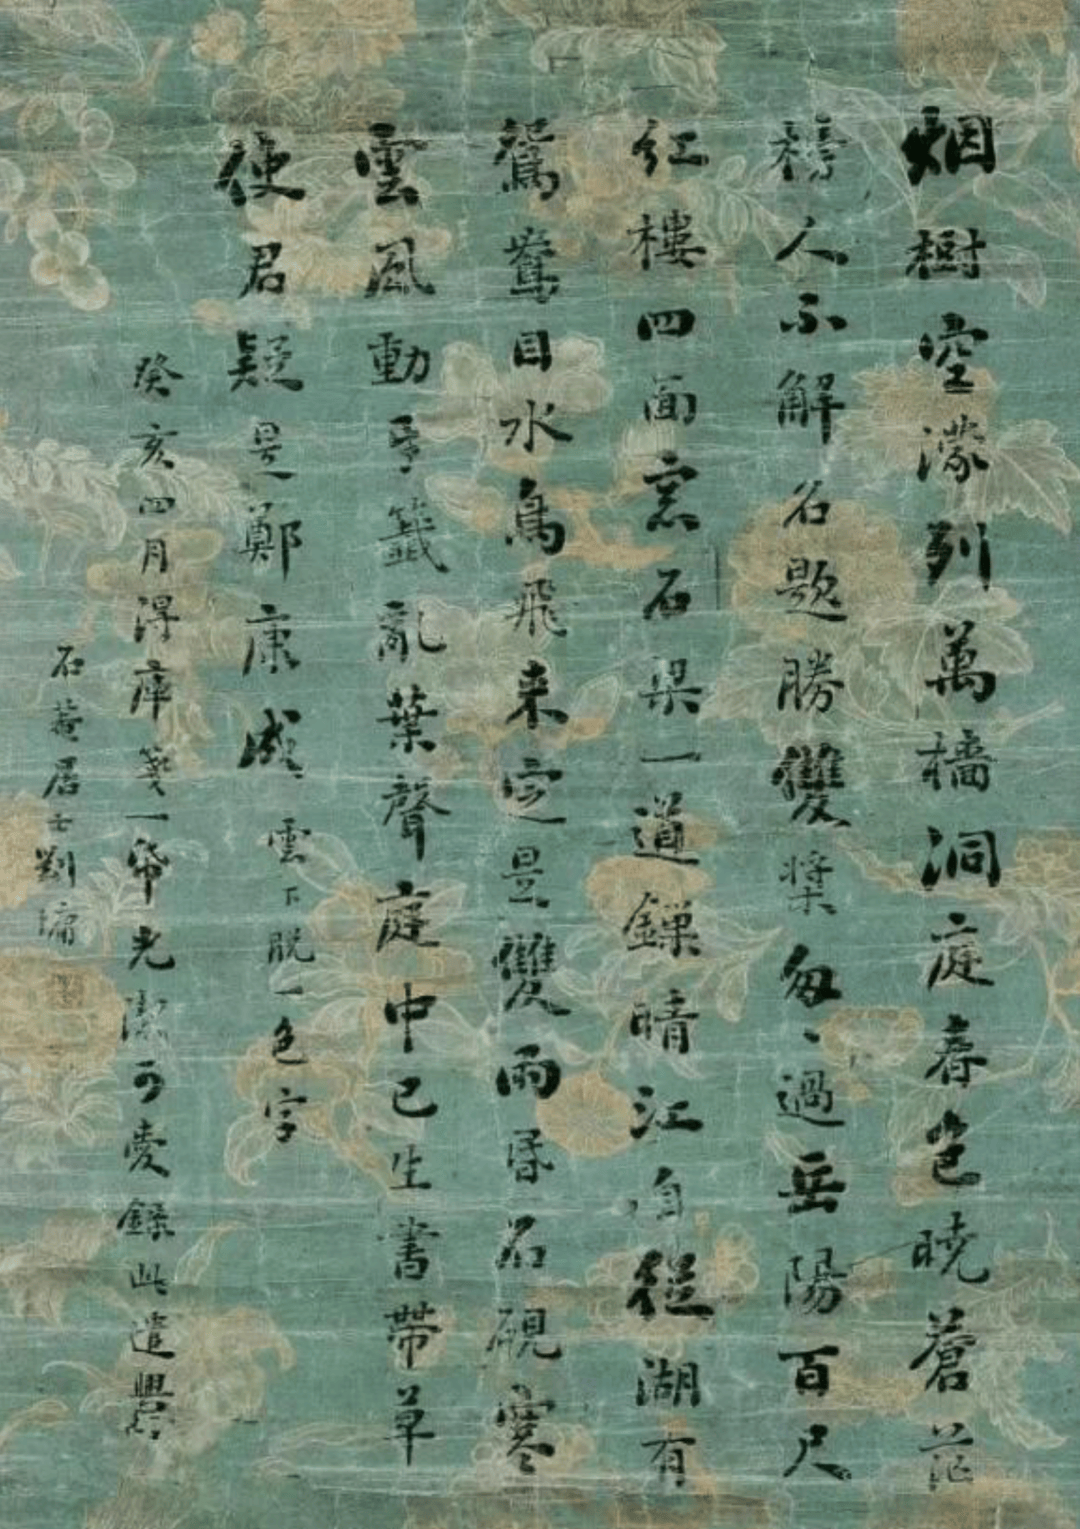 烟樹空濛列萬檣洞庭春色曉蒼茫
榜人不解名題勝雙槳匆、過岳陽百尺
紅樓四面窓石梁一道鏁晴江自從湖有
鴛鴦目水鳥飛来定是雙雨昏石硯寒
雲風動牙籤亂葉聲庭中已生書帶草
使君疑是鄭康成 雲下脫一色字
癸亥四月得庫箋一帋光潔可愛錄此遣興
石菴居士劉墉